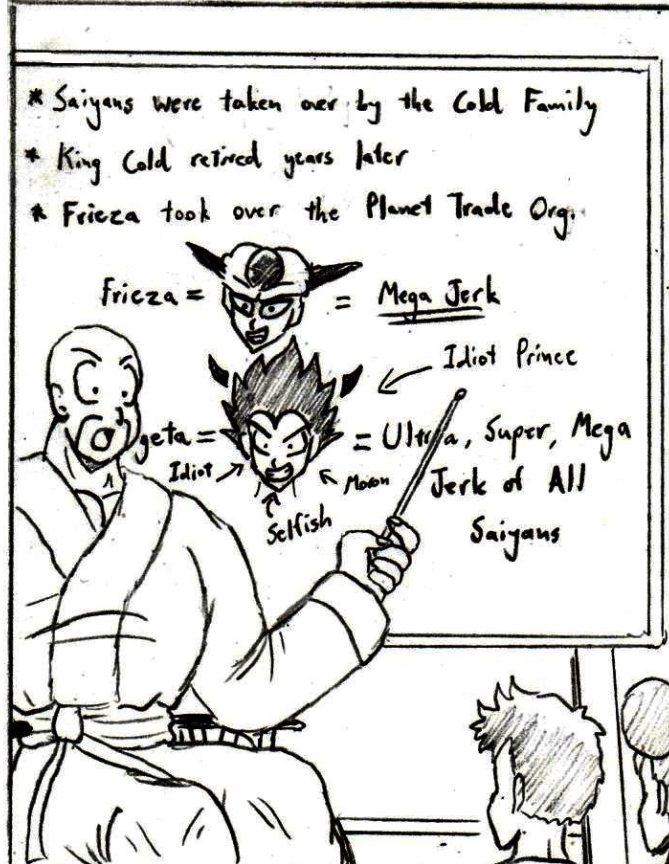 * Saiyans were taken over by the Cold Family
* King Cold retired years later
* Frieza took over the Planet Trade Org.
Frieza = = Mega Jerk
Idiot Prince
geta = = Ultra, Super, Mega
Idiot Moron Jerk of All
Selfish Saiyans